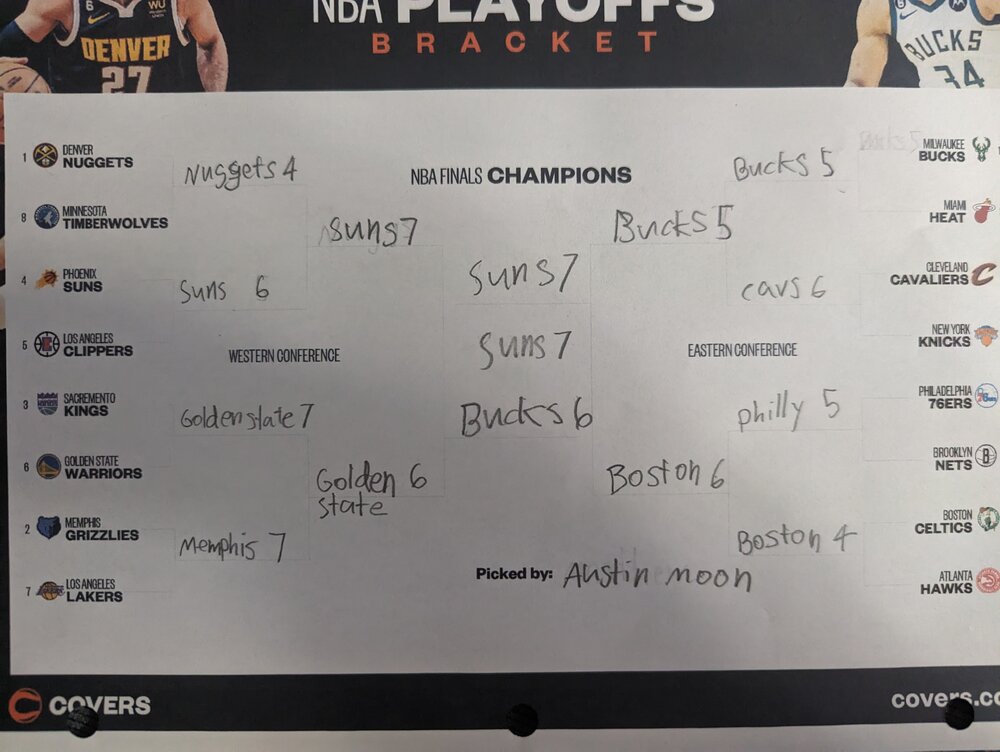 NBA PLAYOFFS
BRACKET
6
WU
DENVER
27
BUCKS
34
1 DENVER NUGGETS
Nuggets 4
8 MINNESOTA TIMBERWOLVES
Suns 7
4 PHOENIX SUNS
Suns 6
5 LOS ANGELES CLIPPERS
WESTERN CONFERENCE
3 SACRAMENTO KINGS
Golden state 7
6 GOLDEN STATE WARRIORS
Golden 6
state
2 MEMPHIS GRIZZLIES
Memphis 7
7 LOS ANGELES LAKERS
NBA FINALS CHAMPIONS
Suns 7
Suns 7
Bucks 6
Picked by: Austin moon
Bucks 5
MILWAUKEE BUCKS
Bucks 5
MIAMI HEAT
Bucks 5
CLEVELAND CAVALIERS
cavs 6
NEW YORK KNICKS
EASTERN CONFERENCE
PHILADELPHIA 76ERS
philly 5
BROOKLYN NETS
Boston 6
BOSTON CELTICS
Boston 4
ATLANTA HAWKS
COVERS
covers.co